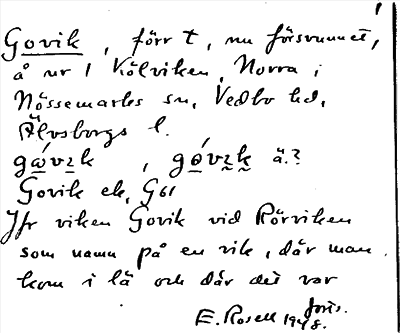 Govik, förr t, nu försvunnet,
å nr 1 Kölviken, Norra i
Nössemarks sn, Vedbo hd,
Älvsborgs l.
Govik ek, G61
Jfr viken Govik vid Rörviken
som namn på en vik, där man
kom i lä och där det var
E. Rosell 1948.